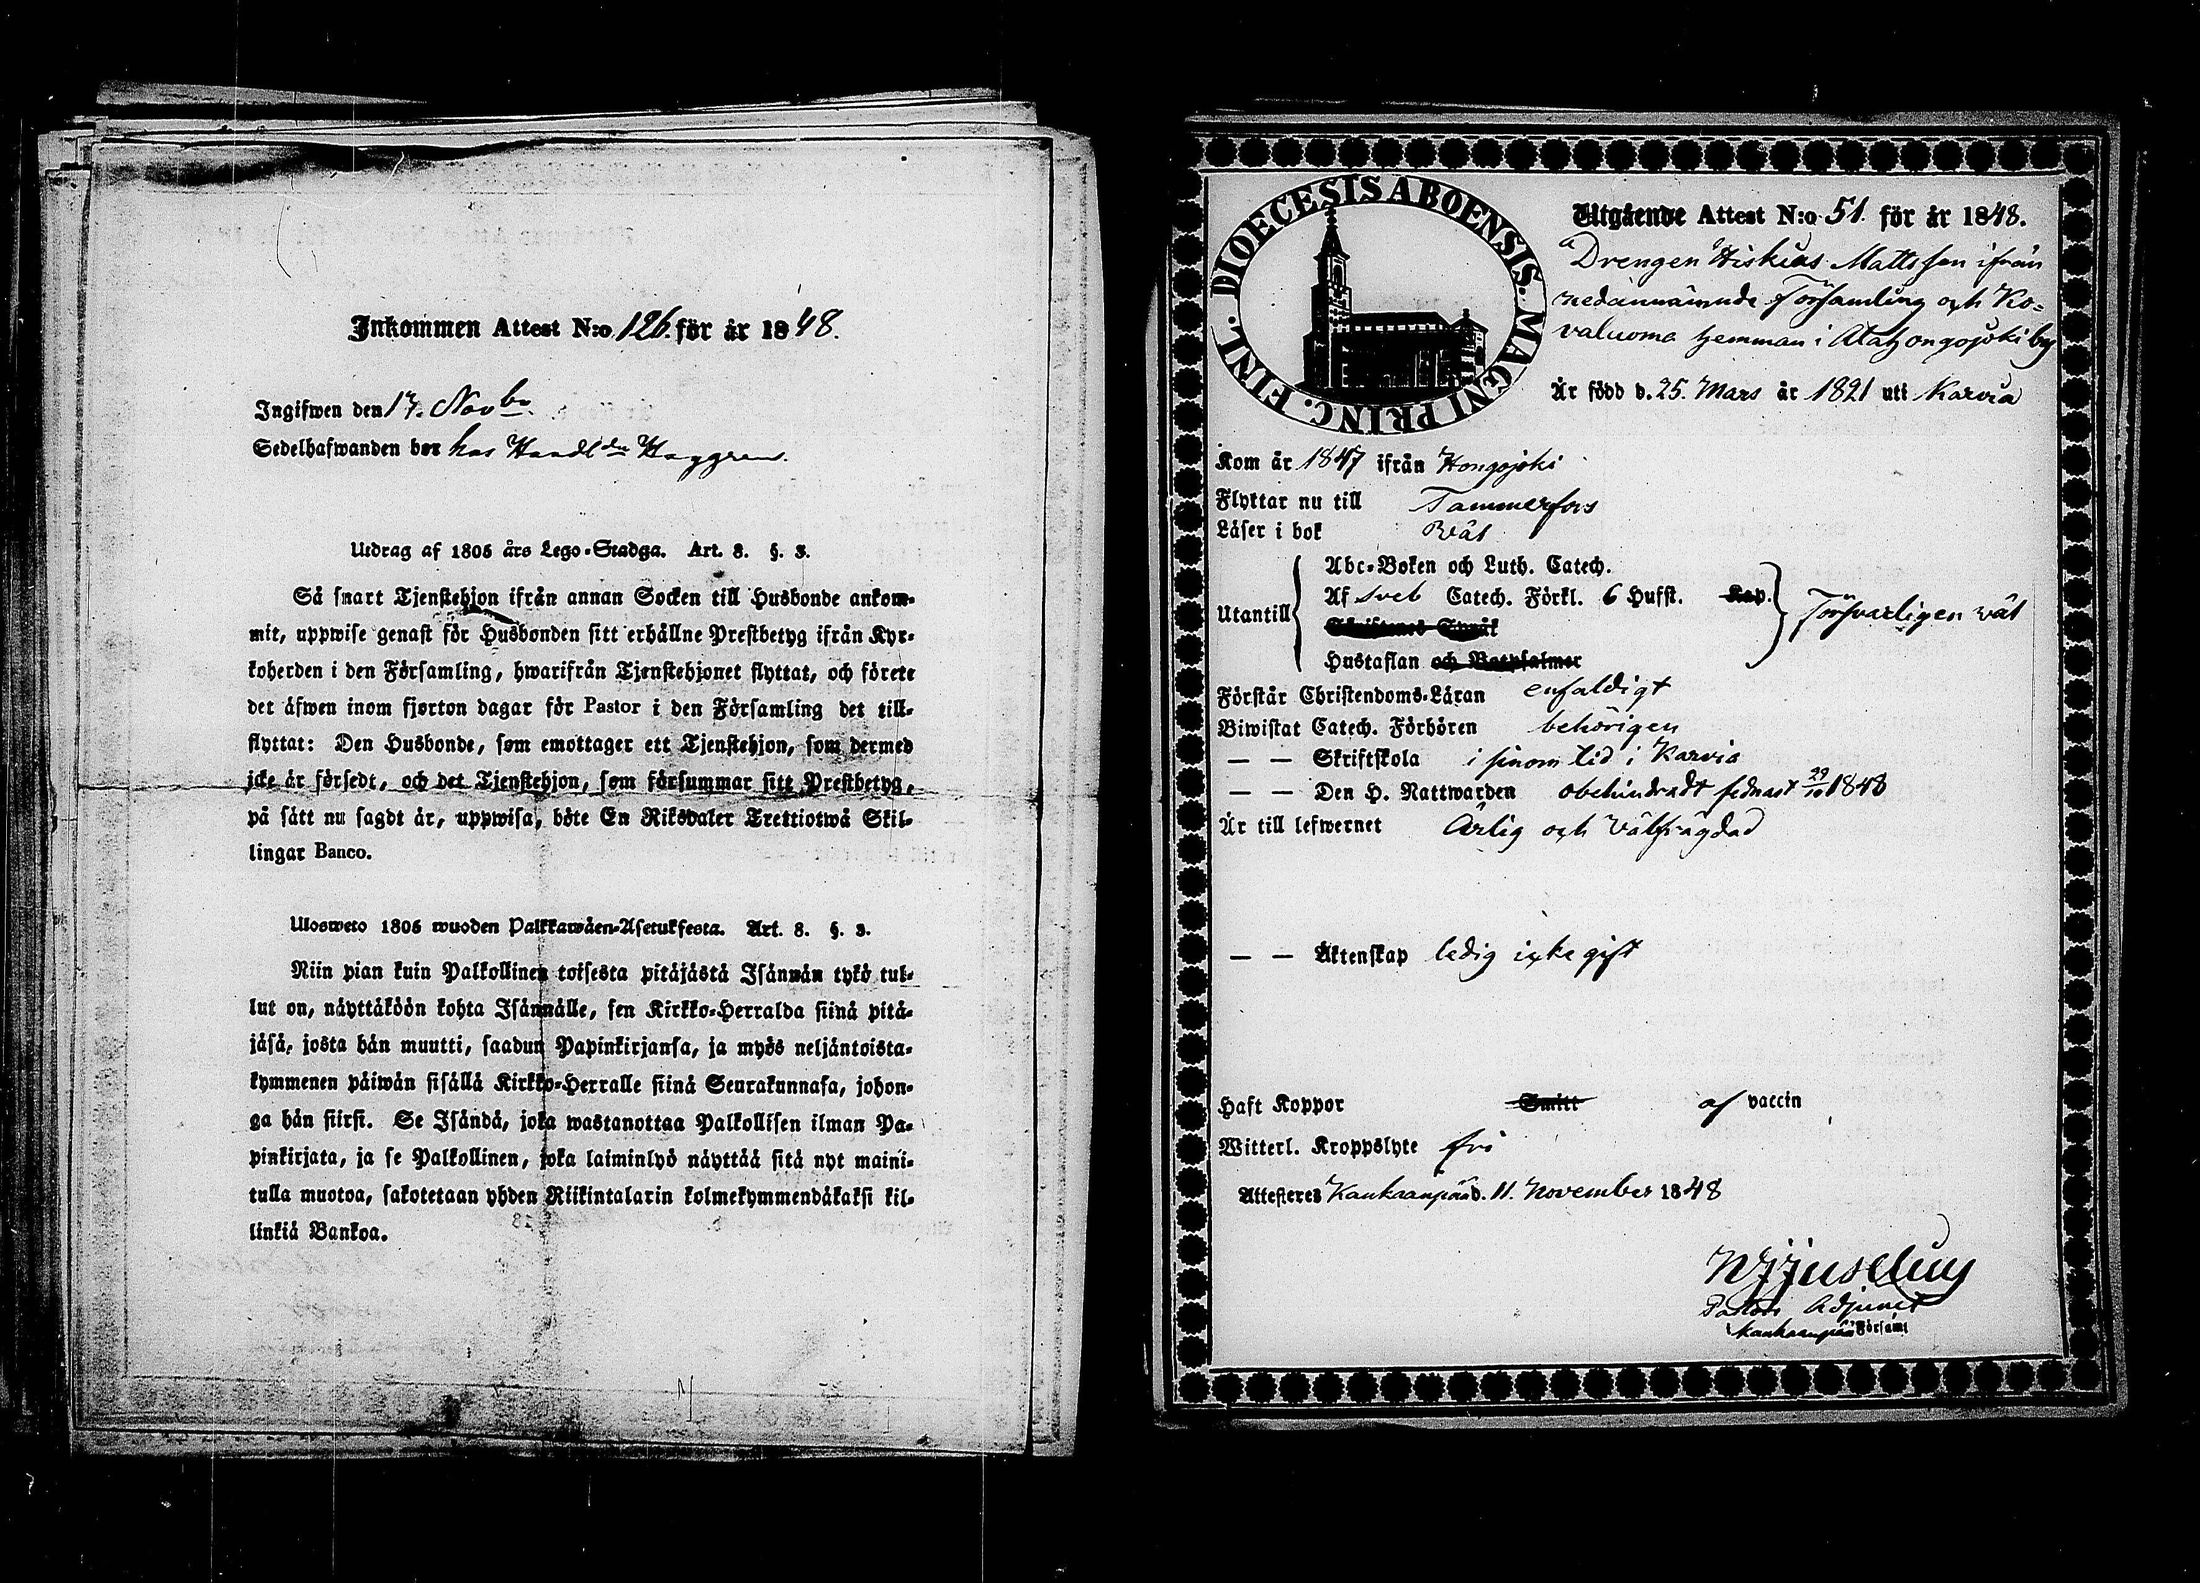 Inkommen Attest N:o 126. för år 1848.
Ingifwen den 17. Novbr.
Sedelhafwanden bor hos Handl
Utdrag af 1805 års Lego-Stadga. Art. 8. §. 3.
Så snart Tjenstehjon ifrån annan Socken till Husbonde ankom-
mit, uppwise genast för Husbonden sitt erhållne Prestbetyg ifrån Kyr-
koherden i den Församling, hwarifrån Tjenstehjonet flyttat, och förete
det äfwen inom fjorton dagar för Pastor i den Församling det till-
flyttat: Den Husbonde, som emottager ett Tjenstehjon, som dermed
icke är försedt, och det Tjenstehjon, som försummar sitt Prestbetyg,
på sätt nu sagdt är, uppwisa, böte En Riksdaler Trettiotwå Skil-
lingar Banco.
Ulosweto 1805 wuoden Palkkawäen-Asetuksesta. Art. 8. §. 3.
Niin pian kuin Palkollinen toisesta pitäjästä Isännän tykö tul-
lut on, näyttäköön kohta Isännälle, sen Kirkko-Herralda siinä pitä-
jäsä, josta hän muutti, saadun Papinkirjansa, ja myös neljäntoista-
kymmenen päiwän sisällä Kirkko-Herralle siinä Seurakunnasa, johon-
ga hän siirsi. Se Isändä, joka wastanottaa Palkollisen ilman Pa-
pinkirjata, ja se Palkollinen, joka laiminlyö näyttää sitä nyt maini-
tulla muotoa, sakotetaan yhden Riikintalarin kolmekymmendäkaksi kil-
linkiä Bankoa.
DIOECESIS ABOENSIS. MAGNI PRINC. FINL.
Utgående Attest N:o 51. för år 1848.
Drengen Hiskias Mattsson ifrån
nedannämnde Församling och Ko-
valuoma hemman i Alahongojoki by
Är född d. 25. Mars år 1821 uti Karvia
Kom år 1847 ifrån Hongojoki
Flyttar nu till Tammerfors
Läser i bok Väl
Abc-Boken och Luth. Catech.
Utantill Af Sveb Catech. Förkl. 6 Hufst. Kap. Försvarligen väl
Skriftenes Språk
Hustaflan och Botpsalmer
Förstår Christendoms-Läran enfaldigt
Biwistat Catech. Förhören behörigen
— — Skriftskola i sinom tid i Karvia
— — Den H. Nattwarden obehindradt sednast 29/10 1848
Är till lefwernet Ärlig och Välfrägdad
— — Äktenskap ledig icke gift
Haft Koppor Smitt af vaccin
Witterl. Kroppslyte fri
Attesteres Kankaanpää d. 11. November 1848
Pastors Adjunct
i Kankaanpää Församl